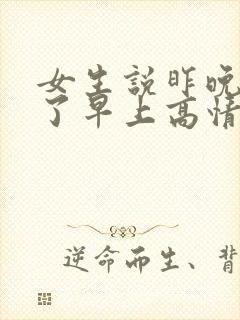 女生説昨晚
了早上高情
逆命而生、背